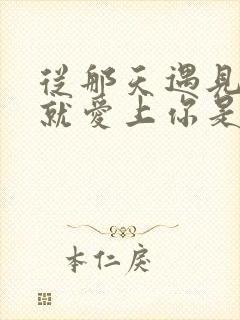 從那天遇見
就愛上你是
本仁戻